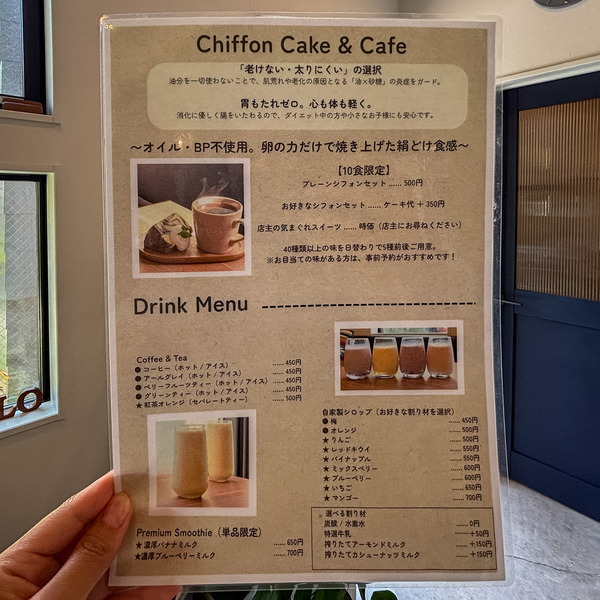 Chiffon Cake & Cafe
「老けない・太りにくい」の選択
油分を一切使わないことで、肌荒れや老化の原因となる「油×砂糖」の炎症をガード。
胃もたれゼロ。心も体も軽く。
消化に優しく腸をいたわるので、ダイエット中の方や小さなお子様にも安心です。
～オイル・BP不使用。卵の力だけで焼き上げた絹どけ食感～
【10食限定】
プレーンシフォンセット ...... 500円
お好きなシフォンセット ...... ケーキ代 + 350円
店主の気まぐれスイーツ ...... 時価（店主にお尋ねください）
40種類以上の味を日替わりで5種前後ご用意。
※お目当ての味がある方は、事前予約がおすすめです！
Drink Menu
Coffee & Tea
●コーヒー（ホット / アイス） ...... 450円
●アールグレイ（ホット / アイス） ...... 450円
●ベリーフルーツティー（ホット / アイス） ...... 450円
●グリーンティー（ホット / アイス） ...... 450円
★紅茶オレンジ（セパレートティー） ...... 500円
自家製シロップ（お好きな割り材を選択）
●梅 ...... 450円
●オレンジ ...... 500円
★りんご ...... 500円
★レッドキウイ ...... 550円
★パイナップル ...... 550円
★ミックスベリー ...... 600円
★ブルーベリー ...... 600円
★いちご ...... 650円
★マンゴー ...... 700円
選べる割り材
炭酸 / 水素水 ...... 0円
特選牛乳 ...... +50円
搾りたてアーモンドミルク ...... +150円
搾りたてカシューナッツミルク ...... +150円
Premium Smoothie（単品限定）
★濃厚バナナミルク ...... 650円
★濃厚ブルーベリーミルク ...... 700円
LO